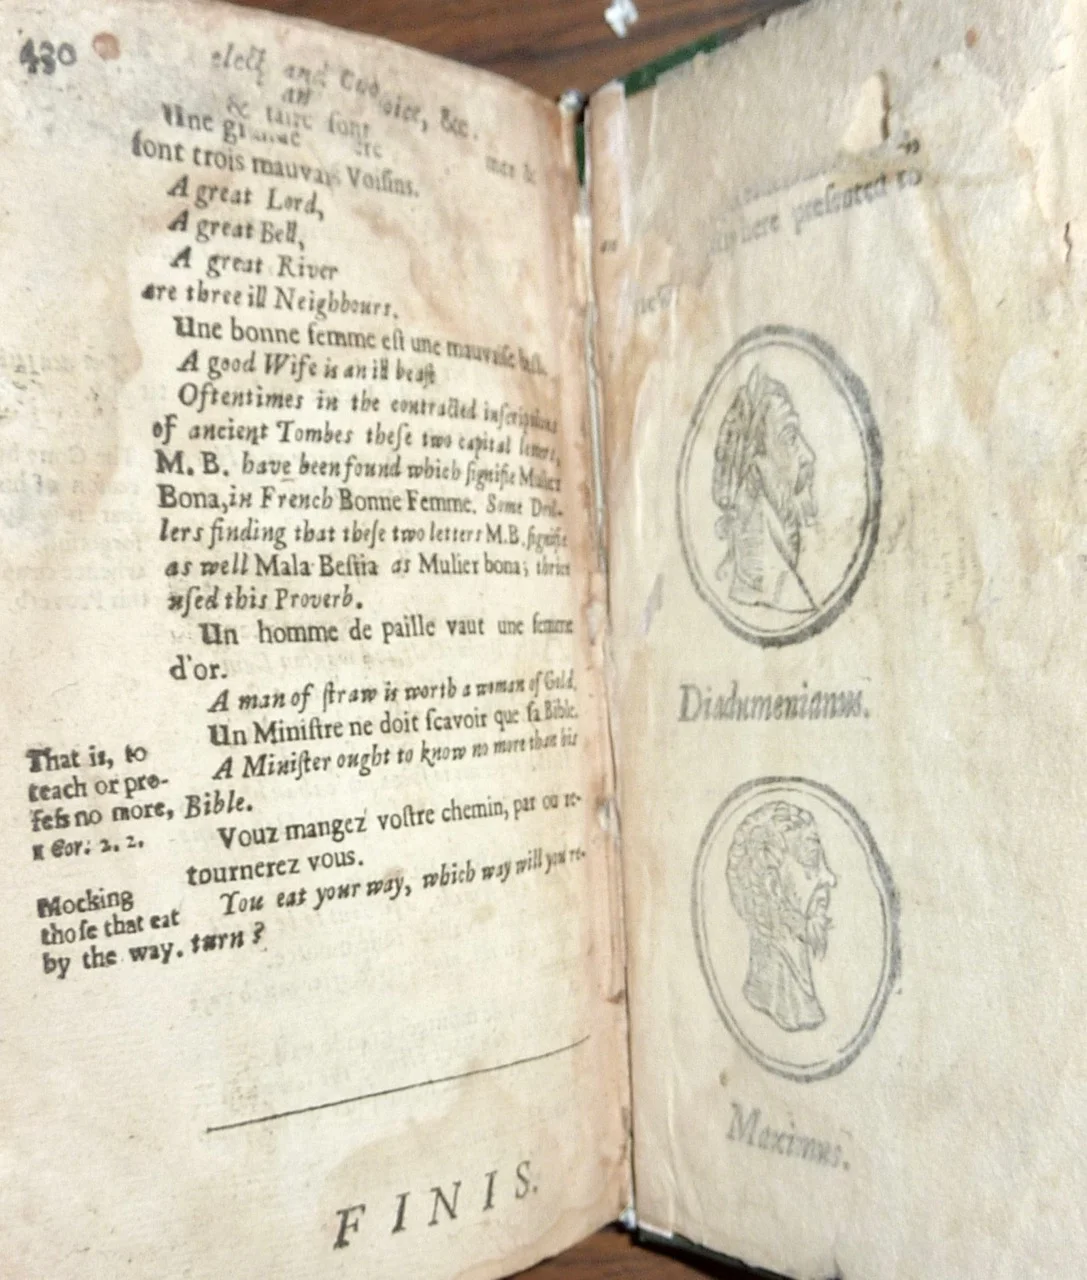 430
and
&c.
Une
font trois mauvais Voiſins.
A great Lord,
A great Bell,
A great River
are three ill Neighbours.
Une bonne femme eſt une mauvaiſe
A good Wife is an ill beaſt
Oftentimes in the contracted inſcriptions
of ancient Tombes theſe two capital letters,
M. B. have been found which ſignifie Mulier
Bona, in French Bonne Femme. Some Drol-
lers finding that theſe two letters M.B. ſignifie
as well Mala Beſtia as Mulier bona;
uſed this Proverb.
Un homme de paille vaut une femme
d'or.
A man of ſtraw is worth a woman of Gold.
Un Miniſtre ne doit ſcavoir que ſa Bible.
A Miniſter ought to know no more than his
Bible.
That is, to
teach or pro-
feſs no more,
1 Cor: 2. 2.
Vouz mangez voſtre chemin, par ou re-
tournerez vous.
You eat your way, which way will you re-
turn?
Mocking
thoſe that eat
by the way.
FINIS.
here preſented to
Diadumenianus.
Maximus.